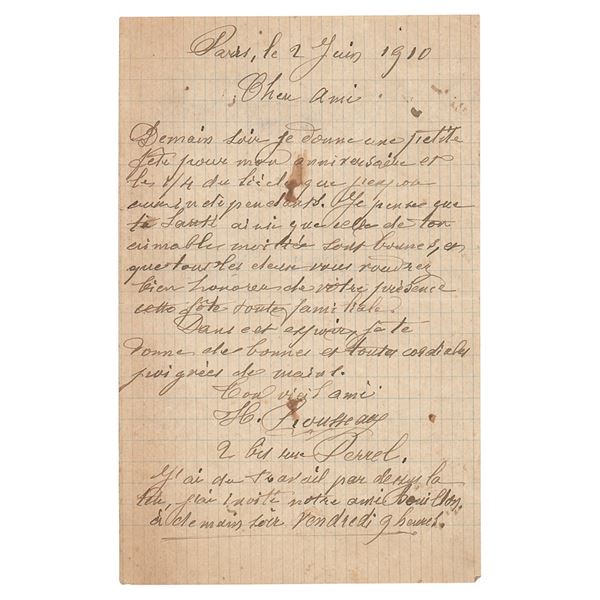 Paris, le 2 Juin 1910
Cher ami
Demain soir je donne une petite
fête pour mon anniversaire et
les 1/4 du siècle que
indépendants. Je pense que
ta Santé ainsi que celle de ton
aimable moitiée sont bonnes, et
que tous les deux vous voudrez
bien honorer de votre présence
cette fête toute familiale.
Dans cet espoir, je te
donne de bonnes et toutes cordiales
poignées de mains.
Ton vieil ami
H. Rousseau
2 bis rue Perrel.
J'ai du travail par dessus la
tête, j'ai invité notre ami
à demain soir vendredi 9 heures.